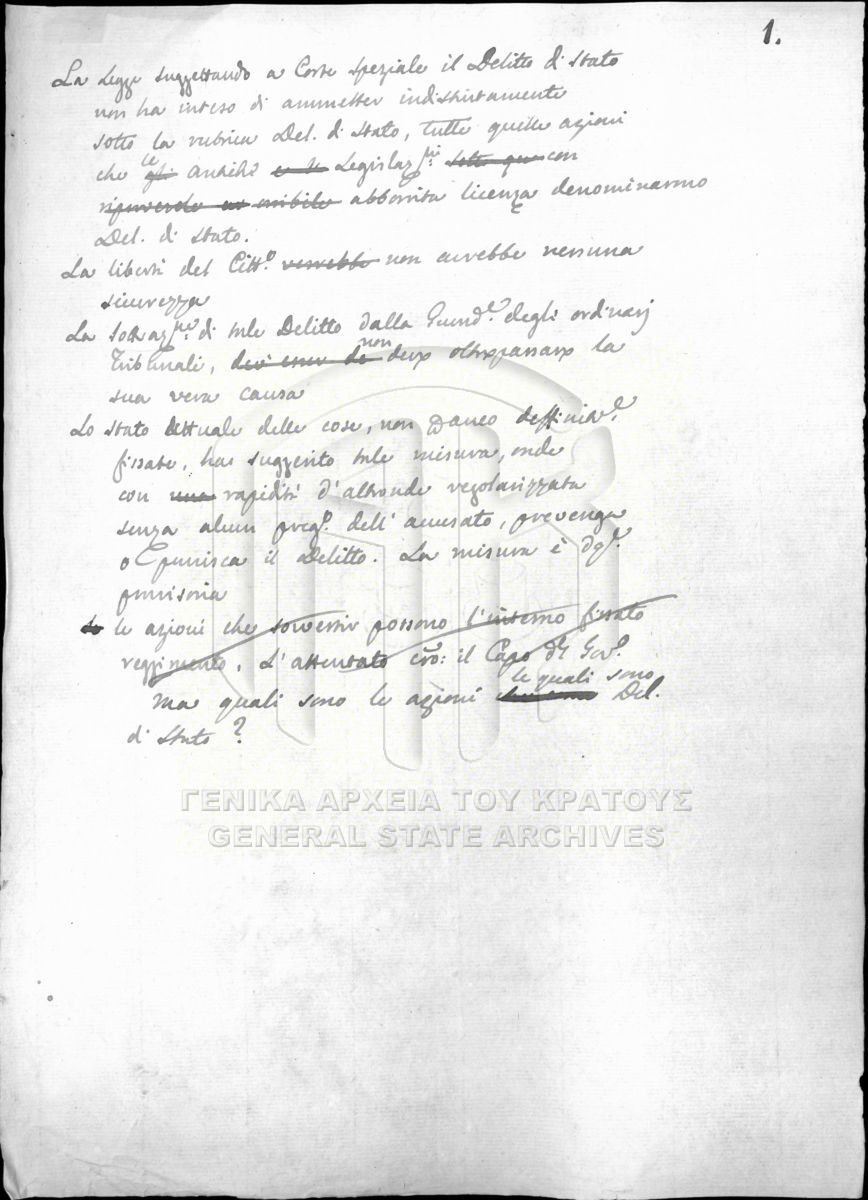 1.
La Legge suggettando a Corte speziale il Delitto di stato
non ha inteso di ammetter indistintamente
sotto la rubrica Del. di Stato, tutte quelle azioni
che le gli antichi Legislaz.ni sotto con
abborrita licenza denominarono
Del. di stato.
La libertà del Citt.o verrebbe non avrebbe nessuna
sicurezza
La sottraz.ne di tale Delitto dalla Giurid.e degli ordinarj
Tribunali, dev'esser non deve oltrepassare la
sua vera causa
Lo stato attuale delle cose, non anco deffinit.e
fissate, has suggerito tale misura, onde
con una rapidità d'altronde regolarizzata
senza alcun preg.o dell'accusato, prevenga
o punisca il Delitto. La misura è
provisoria
le azioni che sovvertir possono l'interno fissato
reggimento. L'attentato il Capo del Gov.o
Ma quali sono le azioni le quali sono Del.
di Stato?
ΓΕΝΙΚΑ ΑΡΧΕΙΑ ΤΟΥ ΚΡΑΤΟΥΣ
GENERAL STATE ARCHIVES